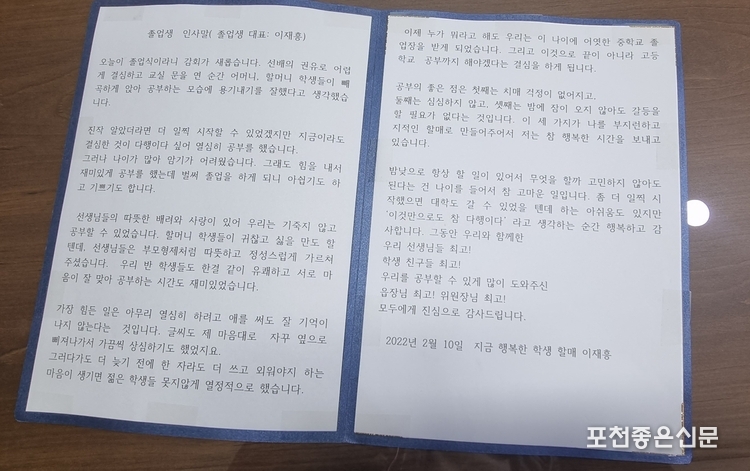 졸업생 인사말( 졸업생 대표: 이재흥)
오늘이 졸업식이라니 감회가 새롭습니다. 선배의 권유로 어렵
게 결심하고 교실 문을 연 순간 어머니, 할머니 학생들이 빼
곡하게 앉아 공부하는 모습에 용기내기를 잘했다고 생각했습
니다.
진작 알았더라면 더 일찍 시작할 수 있었겠지만 지금이라도
결심한 것이 다행이다 싶어 열심히 공부를 했습니다.
그러나 나이가 많아 암기가 어려웠습니다. 그래도 힘을 내서
재미있게 공부를 했는데 벌써 졸업을 하게 되니 아쉽기도 하
고 기쁘기도 합니다.
선생님들의 따뜻한 배려와 사랑이 있어 우리는 기죽지 않고
공부할 수 있었습니다. 할머니 학생들이 귀찮고 싫을 만도 할
텐데, 선생님들은 부모형제처럼 따뜻하고 정성스럽게 가르쳐
주셨습니다. 우리 반 학생들도 한결 같이 유쾌하고 서로 마
음이 잘 맞아 공부하는 시간도 재미있었습니다.
가장 힘든 일은 아무리 열심히 하려고 애를 써도 잘 기억이
나지 않는다는 것입니다. 글씨도 제 마음대로 자꾸 옆으로
삐져나가서 가끔씩 상심하기도 했었지요.
그러다가도 더 늦기 전에 한 자라도 더 쓰고 외워야지 하는
마음이 생기면 젊은 학생들 못지않게 열정적으로 했습니다.
이제 누가 뭐라고 해도 우리는 이 나이에 어엿한 중학교 졸
업장을 받게 되었습니다. 그리고 이것으로 끝이 아니라 고등
학교 공부까지 해야겠다는 결심을 하게 됩니다.
공부의 좋은 점은 첫째는 치매 걱정이 없어지고,
둘째는 심심하지 않고, 셋째는 밤에 잠이 오지 않아도 갈등을
할 필요가 없다는 것입니다. 이 세 가지가 나를 부지런하고
지적인 할매로 만들어주어서 저는 참 행복한 시간을 보내고
있습니다.
밤낮으로 항상 할 일이 있어서 무엇을 할까 고민하지 않아도
된다는 건 나이를 들어서 참 고마운 일입니다. 좀 더 일찍 시
작했으면 대학도 갈 수 있었을 텐데 하는 아쉬움도 있지만
'이것만으로도 참 다행이다' 라고 생각하는 순간 행복하고 감
사합니다. 그동안 우리와 함께한
우리 선생님들 최고!
학생 친구들 최고!
우리를 공부할 수 있게 많이 도와주신
읍장님 최고! 위원장님 최고!
모두에게 진심으로 감사드립니다.
2022년 2월 10일 지금 행복한 학생 할매 이재흥
포천좋은신문